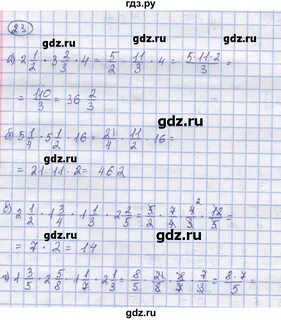 гдз.ру
23
а) 2 1/2 · 3 2/3 · 4 = 5/2 · 11/3 · 4 = 5·11·2/3 =
= 110/3 = 36 2/3
б) 5 1/4 · 5 1/2 · 16 = 21/4 · 11/2 · 16 =
= 21 · 11 · 2 = 462
в) 2 1/2 · 1 3/4 · 1 1/3 · 2 2/5 = 5/2 · 7/4 · 4/3 · 12/5 =
= 7 · 2 = 14
г) 1 3/5 · 2 5/8 · 1 1/7 · 2 1/3 = 8/5 · 21/8 · 8/7 · 7/3 = 8·7/5 =
gdz.ru